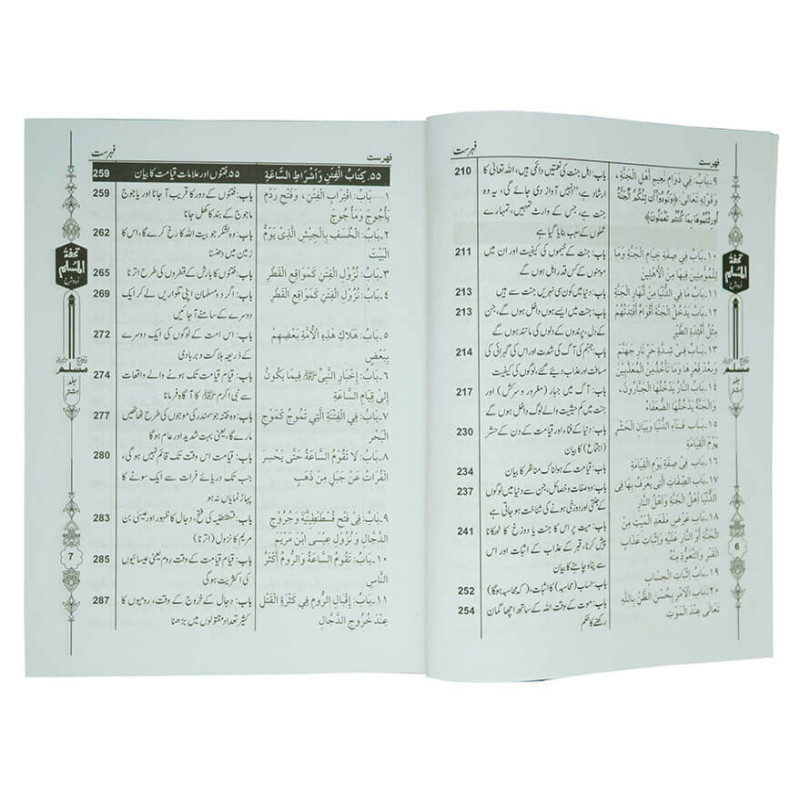 فہرست
فہرست
٩۔بَابٌ: فِي دَوَامِ نَعِيمِ أَهْلِ الْجَنَّةِ،
وَقَوْلِهِ تَعَالَى: ﴿وَنُودُوٓا۟ أَن تِلْكُمُ ٱلْجَنَّةُ
أُورِثْتُمُوهَا بِمَا كُنتُمْ تَعْمَلُونَ﴾
باب: اہل جنت کی نعمتیں دائمی ہیں، اللہ تعالیٰ کا
ارشاد ہے، "انہیں آواز دی جائے گی، یہ وہ
جنت ہے، جس کے وارث تمہیں، تمہارے
عملوں کے سبب بنایا گیا ہے
210
١٠۔بَابٌ: فِي صِفَةِ خِيَامِ الْجَنَّةِ وَمَا
لِلْمُؤْمِنِينَ فِيهَا مِنَ الْأَهْلِينَ
باب: جنت کے خیموں کی کیفیت اور ان میں
مومنوں کے کس قدر اہل ہوں گے
211
١١۔بَابُ مَا فِي الدُّنْيَا مِنْ أَنْهَارِ الْجَنَّةِ
باب: دنیا میں کون سی نہریں جنت سے ہیں
213
١٢۔بَابٌ يَدْخُلُ الْجَنَّةَ أَقْوَامٌ أَفْئِدَتُهُمْ
مِثْلُ أَفْئِدَةِ الطَّيْرِ
باب: جنت میں ایسے لوگ داخل ہوں گے، جن
کے دل، پرندوں کے دلوں کی مانند ہوں گے
213
١٣۔بَابٌ فِي شِدَّةِ حَرِّ نَارِ جَهَنَّمَ
وَبُعْدِ قَعْرِهَا وَمَا تَأْخُذُ مِنَ الْمُعَذَّبِينَ
باب: جہنم کی آگ کی شدت اور اس کی گہرائی کی
مسافت اور عذاب دیے گئے لوگوں کی کیفیت
214
١٤۔بَابٌ: النَّارُ يَدْخُلُهَا الْجَبَّارُونَ،
وَالْجَنَّةُ يَدْخُلُهَا الضُّعَفَاءُ
باب: آگ میں جبار (مغرور و سرکش) اور
جنت میں کم حیثیت والے لوگ داخل ہوں گے
217
١٥۔بَابُ فَنَاءِ الدُّنْيَا وَبَيَانِ الْحَشْرِ
يَوْمَ الْقِيَامَةِ
باب: دنیا کے فناء، اور قیامت کے دن کے حشر
(اجتماع) کا بیان
230
١٦۔بَابٌ: فِي صِفَةِ يَوْمِ الْقِيَامَةِ
باب: قیامت کے ہولناک مناظر کا بیان
234
١٧۔بَابُ الصِّفَاتِ الَّتِي يُعْرَفُ بِهَا فِي
الدُّنْيَا أَهْلُ الْجَنَّةِ وَأَهْلُ النَّارِ
باب: وہ صفات و خصائل، جن سے دنیا میں لوگوں
کے جنتی اور دوزخی ہونے کی شناخت ہو جاتی ہے
237
١٨۔بَابُ عَرْضِ مَقْعَدِ الْمَيِّتِ مِنَ
الْجَنَّةِ أَوِ النَّارِ عَلَيْهِ وَإِثْبَاتِ عَذَابِ
الْقَبْرِ وَالتَّعَوُّذِ مِنْهُ
باب: میت پر اس کا جنت یا دوزخ کا ٹھکانا
پیش کرنا، قبر کے عذاب کے اثبات اور اس
سے پناہ چاہنے کا بیان
241
١٩۔بَابُ إِثْبَاتِ الْحِسَابِ
باب: حساب (محاسبہ) کا اثبات، (کہ محاسبہ ہوگا)
252
٢٠۔بَابُ الْأَمْرِ بِحُسْنِ الظَّنِّ بِاللَّهِ
تَعَالَى عِنْدَ الْمَوْتِ
باب: موت کے وقت اللہ کے ساتھ اچھا گمان
رکھنے کا حکم
254
تحفۃ
المسلم
مسلم
جلد
ہشتم
6
فہرست
فہرست
٥٥۔كِتَابُ الْفِتَنِ وَأَشْرَاطِ السَّاعَةِ
٥٥ فتنوں اور علامات قیامت کا بیان
259
١۔بَابُ: اقْتِرَابِ الْفِتَنِ، وَفَتْحِ رَدْمِ
يَأْجُوجَ وَمَأْجُوجَ
باب: فتنوں کے دور کا قریب آ جانا اور یاجوج
ماجوج کے بند کا کھل جانا
259
٢۔بَابُ: الْخَسْفِ بِالْجَيْشِ الَّذِي يَؤُمُّ
الْبَيْتَ
باب: وہ لشکر جو بیت اللہ کا رخ کرے گا، اس کا
زمین میں دھنسنا
262
٣۔بَابُ: نُزُولِ الْفِتَنِ كَمَوَاقِعِ الْقَطْرِ
باب: فتنوں کا بارش کے قطروں کی طرح اترنا
265
٤۔بَابُ: نُزُولِ الْفِتَنِ كَمَوَاقِعِ الْقَطْرِ
باب: اگر دو مسلمان اپنی تلواریں لے کر ایک
دوسرے کے سامنے آ جائیں
269
٥۔بَابُ: هَلَاكِ هَذِهِ الْأُمَّةِ بَعْضِهِمْ
بِبَعْضٍ
باب: اس امت کے لوگوں کی ایک دوسرے
کے ذریعہ ہلاکت و بربادی
272
٦۔بَابُ: إِخْبَارِ النَّبِيِّ ﷺ فِيمَا يَكُونُ
إِلَى قِيَامِ السَّاعَةِ
باب: قیام قیامت تک ہونے والے واقعات
سے نبی اکرم ﷺ کا آگاہ فرمانا
274
٧۔بَابُ: فِي الْفِتْنَةِ الَّتِي تَمُوجُ كَمَوْجِ
الْبَحْرِ
باب: وہ فتنہ جو سمندر کی موجوں کی طرح ٹھاٹھیں
مارے گا، یعنی بہت شدید اور عام ہوگا
277
٨۔بَابُ: لَا تَقُومُ السَّاعَةُ حَتَّى يَحْسِرَ
الْفُرَاتُ عَنْ جَبَلٍ مِنْ ذَهَبٍ
باب: قیامت اس وقت تک قائم نہیں ہوگی،
جب تک دریائے فرات سے ایک سونے کا
پہاڑ نمایاں نہ ہو
280
٩۔بَابُ: فِي فَتْحِ قُسْطَنْطِينِيَّةَ وَخُرُوجِ
الدَّجَّالِ وَنُزُولِ عِيسَى ابْنِ مَرْيَمَ
باب: قسطنطنیہ کی فتح، دجال کا ظہور اور عیسیٰ بن
مریم کا نزول (اترنا)
283
١٠۔بَابُ: تَقُومُ السَّاعَةُ وَالرُّومُ أَكْثَرُ
النَّاسِ
باب: قیام قیامت کے وقت روم یعنی عیسائیوں
کی اکثریت ہوگی
285
١١۔بَابُ: إِقْبَالِ الرُّومِ فِي كَثْرَةِ الْقَتْلِ
عِنْدَ خُرُوجِ الدَّجَّالِ
باب: دجال کے خروج کے وقت، رومیوں کا
کثیر تعداد مقتولوں میں بڑھنا
287
تحفۃ
المسلم
مسلم
جلد
ہشتم
7